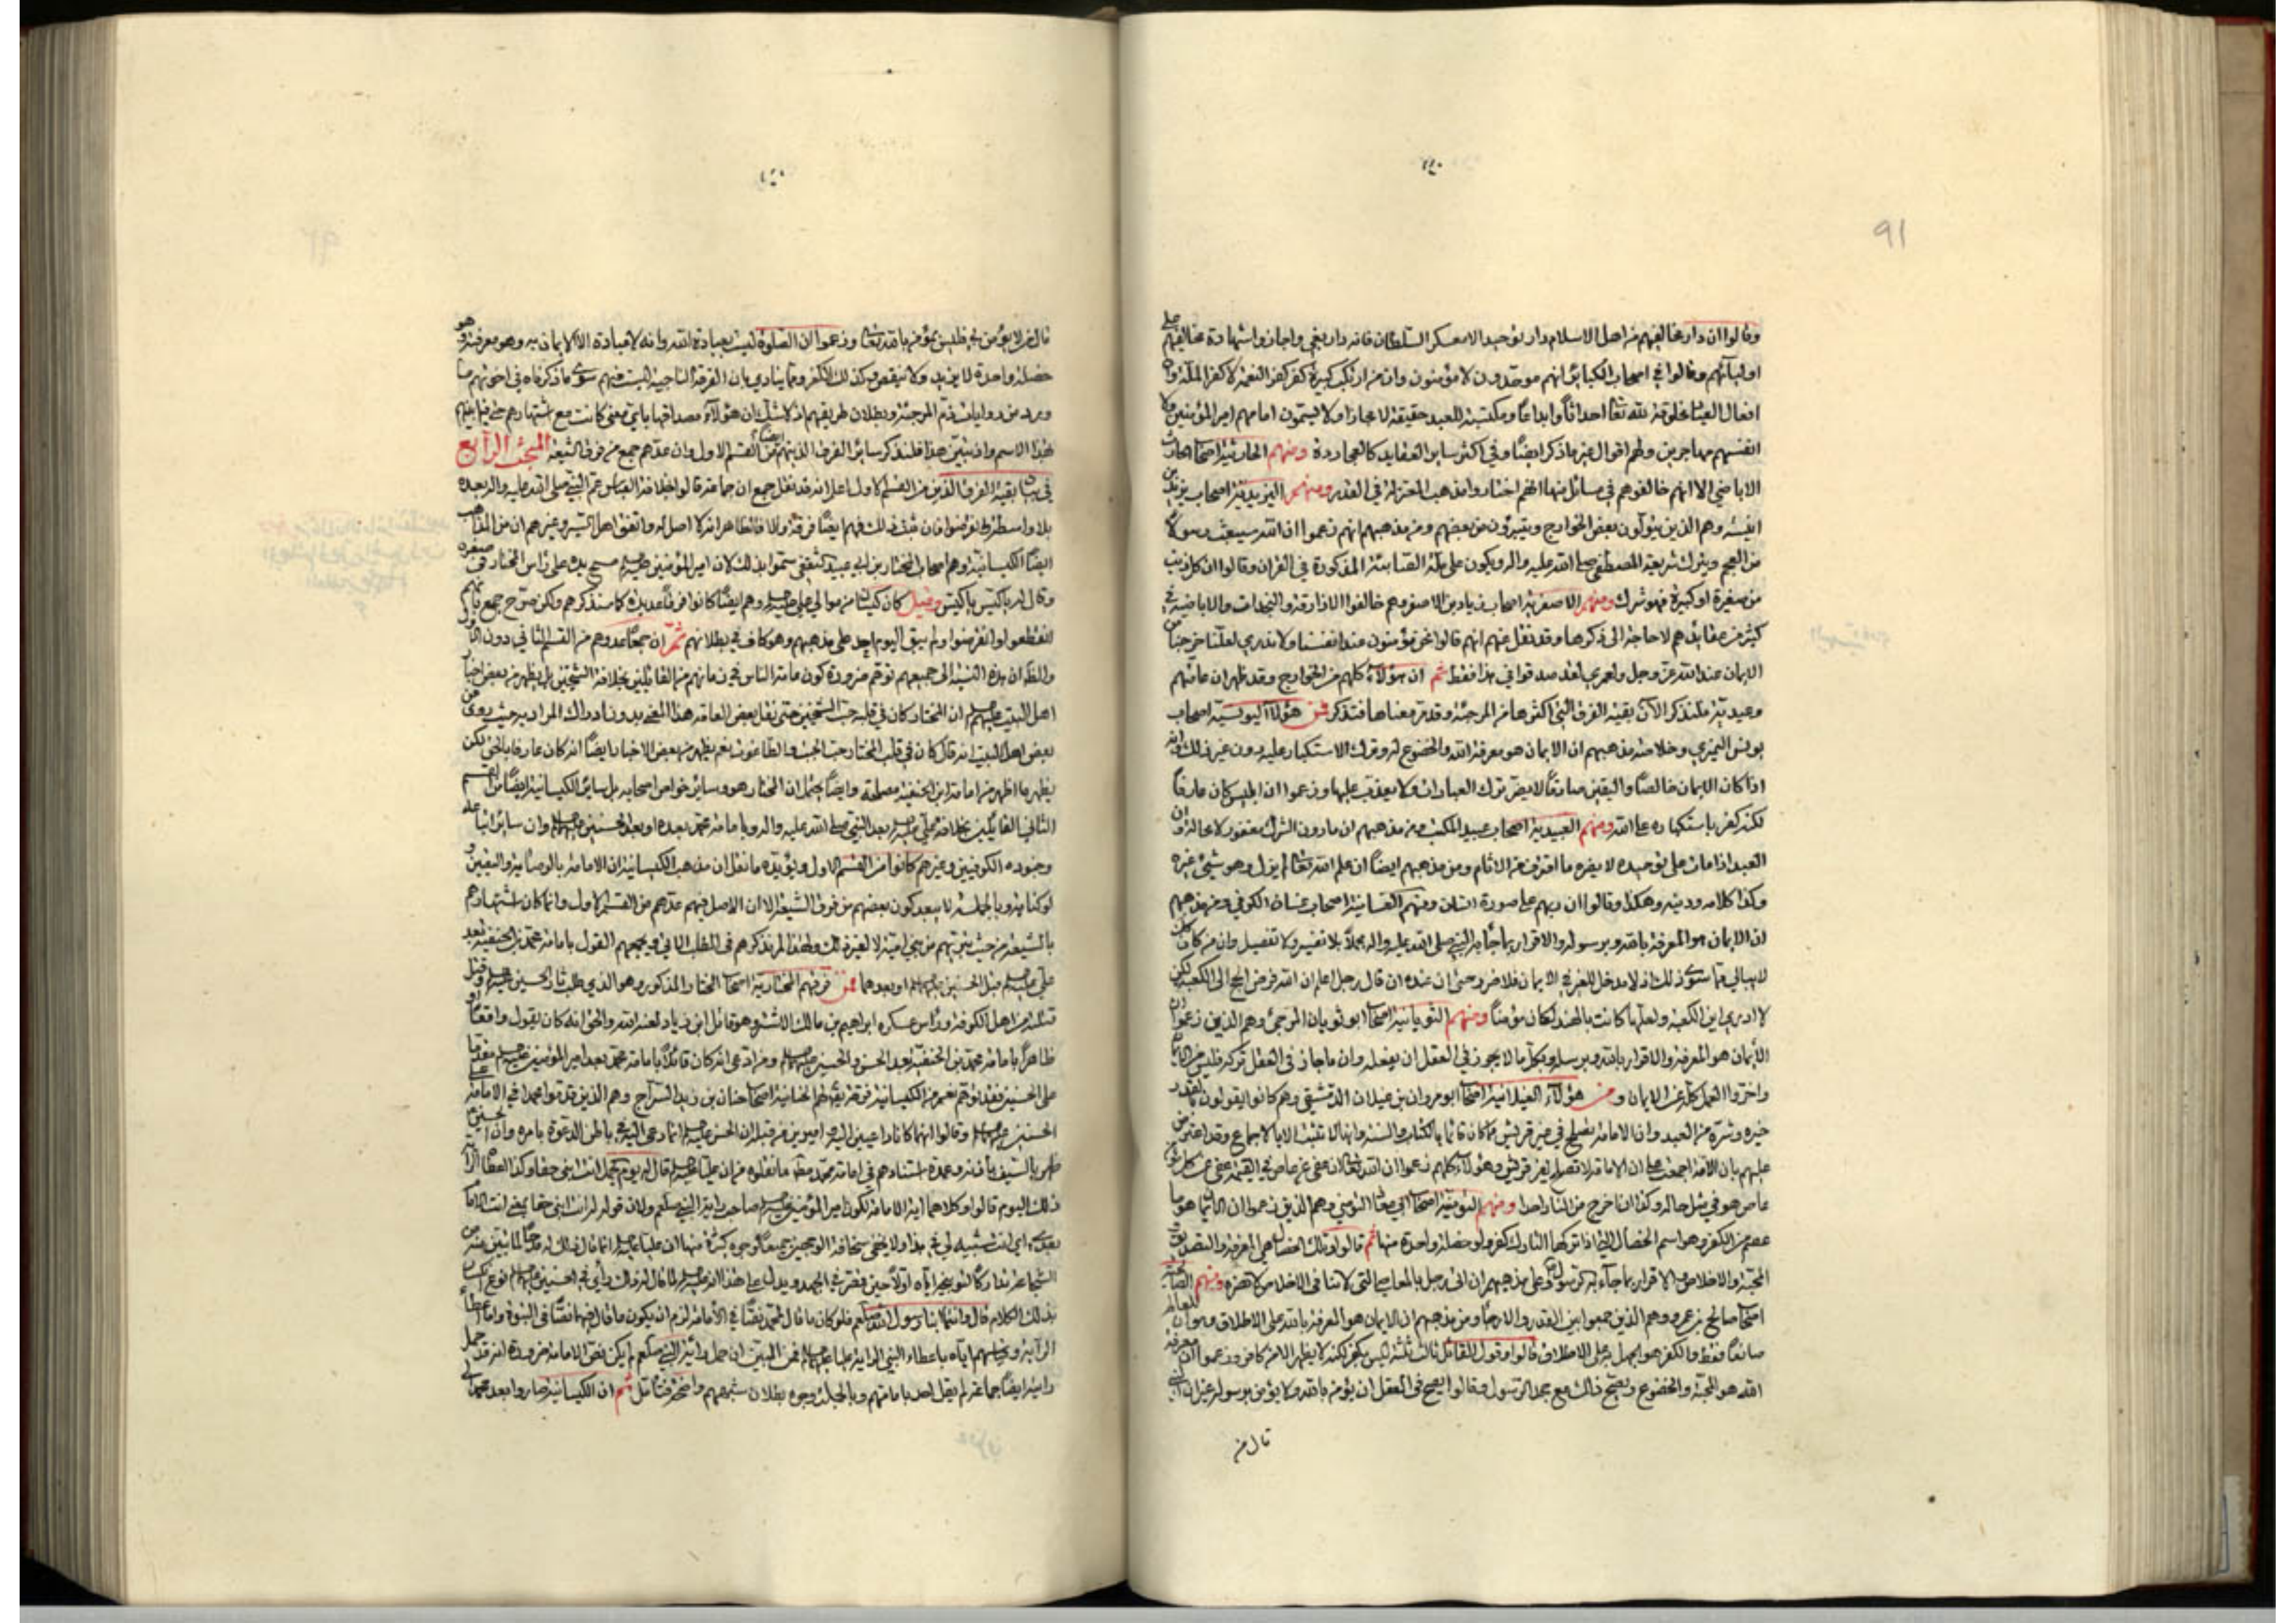 ٩١
وقالوا ان دار مخالفيهم من اهل الاسلام دار توحيد الا معسكر السلطان فانه دار بغي واجازوا شهادة مخالفيهم على
اوليائهم وقالوا في اصحاب الكبائر انهم موحدون لا مؤمنون وان من ارتكب كبيرة كفر كفر النعمة لا كفر الملة وان
افعال العباد مخلوقة لله تعالى احداثاً وابداعاً ومكتسبة للعبد حقيقة لا مجازا ولا يسمون امامهم امير المؤمنين ولا
انفسهم مهاجرين ولهم اقوال غير ما ذكر ايضاً وفي اكثر سائر العقايد كالعجاردة ومنهم الحارثية اصحاب الحارث
الاباضي الا انهم خالفوهم في مسائل منها انهم اختاروا مذهب المعتزلة في القدر ومنهم اليزيدية اصحاب يزيد بن
انيسه وهم الذين يتولون بعض الخوارج ويتبرؤن من بعضهم ومن مذهبهم انهم زعموا ان الله سيبعث رسولا
من العجم ويترك شريعة المصطفى صلى الله عليه واله ويكون على ملة الصابئة المذكورة في القران وقالوا ان كل ذنب
من صغيرة او كبيرة فهو شرك ومنهم الاصفرية اصحاب زياد بن الاصفر وهم خالفوا الازارقة والنجدات والاباضية في
كثير من عقايدهم لا حاجة الى ذكرها وقد نقل عنهم انهم قالوا نحن مؤمنون عند انفسنا ولا ندري لعلنا خرجنا من
الايمان عند الله عز وجل ولعمري لقد صدقوا في هذا فقط ثم ان هؤلاء كلهم من الخوارج وقد ظهر ان عامتهم
وعيدية فلنذكر الآن بقية الفرق التي اكثرها من المرجئة وقد مر معناها فتذكر فمن هؤلاء اليونسية اصحاب
يونس النميري وخلاصة مذهبهم ان الايمان هو معرفة الله والخضوع له وترك الاستكبار عليه دون غير ذلك وانه
اذا كان الايمان خالصاً واليقين صادقاً لا يضر ترك العبادات ولا يعذب عليها وزعموا ان ابليس كان عارفاً
لكنه كفر باستكباره على الله ومنهم العبيدية اصحاب عبيد المكتئب ومن مذهبهم ان ما دون الشرك مغفور لا محالة وان
العبد اذا مات على توحيده لا يضره ما اقترف من الاثام ومن مذهبهم ايضاً ان علم الله تعالى لم يزل وهو شيئ غيره
وكذا كلامه ودينه وهكذا وقالوا ان ربهم على صورة انسان ومنهم الغسانية اصحاب غسان الكوفي ومن مذهبهم
ان الايمان هو المعرفة بالله وبرسوله والاقرار بما جاء به النبي صلى الله عليه واله مجملاً بلا تفسير ولا تفصيل وان من كان
لا يبالي فيما سوى ذلك اذ لا مدخل للغير في الايمان فلا ضرر حتى ان عنده ان قال رجل اعلم ان الله فرض الحج الى الكعبة لكن
لا ادري اين الكعبة ولعلها كانت بالهند لكان مؤمناً ومنهم الثوبانية اصحاب ابو ثوبان المرجئ وهم الذين زعموا ان
الأيمان هو المعرفة والاقرار بالله وبرسله وبكل ما لا يجوز في العقل ان يفعله وان ما جاز في العقل تركه فليس من الايمان
واخروا العمل كله عن الايمان ومن هؤلاء الغيلانية اصحاب ابو مروان بن غيلان الدمشقي وهم كانوا يقولون بالقدر
خيره وشره من العبد وان الامامة تصلح في غير قريش فكل من كان قائما بالكتاب والسنة وانها لا تثبت الا بالاجماع
عليهم بان الامة اجمعت على ان الامامة لا تصلح لغير قريش وهؤلاء كلهم زعموا ان الله تعالى لو عفى عن عاص في القيمة عفى عن كل
عاص هو في مثل حاله وكذا ان اخرج من النار احدا ومنهم التومنية اصحاب ابي معاذ التومني وهم الذين زعموا ان الايمان هو ما
عصم من الكفر وهو اسم الخصال التي اذا تركها التارك كفر ولو خصلة واحدة منها ثم قالوا وتلك الخصال هي المعرفة والتصديق و
المحبة والاخلاص والاقرار بما جاء به الرسول ومنهم الصالحية
اصحاب صالح بن عمرو وهم الذين جمعوا بين القدر والارجاء ومن مذهبهم ان الايمان هو المعرفة بالله على الاطلاق وهو ان للعالم
صانعاً فقط والكفر هو الجهل به على الاطلاق قالوا وقول القائل ثالث ثلثة ليس بكفر لكنه لا يظهر الا من كافر وزعموا ان معرفة
الله هو المحبة والخضوع ويصح ذلك مع جحد الرسول وقالوا يصح في العقل ان يؤمن بالله ولا يؤمن برسوله غير ان
قال من
قال من لا يؤمن بي فليس بمؤمن بالله تعالى وزعموا ان الصلوة ليست بعبادة الله وانه لا عبادة الا الايمان به وهو معرفته وهو
خصلة واحدة لا يزيد ولا ينقص وكذلك الكفر ومما ينادي بان الفرقة الناجية ليست منهم سوى ما ذكرناه في اخوتهم ما
ورد من روايات ذم المرجئة وبطلان طريقهم اذ لا شك ان هؤلاء مصداقها باي معنى كانت مع اشتهارهم
بهذا الاسم واذ تبين هذا فلنذكر سائر الفرق الذين هم من القسم الاول وان عدهم جمع من فرق الشيعة المبحث الرابع
في بيان بقية الفرق الذين من القسم الاول اعلم انه قد نقل جمع ان جماعة قالوا بخلافة العباس عم النبي صلى الله عليه واله بعده
بلا واسطة ثم انقرضوا فان ثبت ذلك فهم ايضاً فرقة والا فالظاهر انه لا اصل له واتفق اهل السير وغيرهم ان من المذاهب
ايضاً الكيسانية وهم اصحاب المختار بن ابي عبيد الثقفي سموا بذلك لان امير المؤمنين عليه السلام مسح يده على راس المختار في صغره
وقال له يا كيس يا كيس وقيل كان كيسان من موالي علي عليه السلام وهم ايضاً كانوا فرقاً عديدة كما سنذكرهم ولكن صرح جمع بانهم
انقطعوا وانقرضوا ولم يبق اليوم احد على مذهبهم وهو كاف في بطلانهم ثم ان جمعاً عدوهم من القسم الثاني دون الاول
والظ ان هذه النسبة الى جميعهم توهم ضرورة كون عامة الناس في زمانهم من القائلين بخلافة الشيخين بل يظهر من بعض اخبار
اهل البيت عليهم السلام ان المختار كان في قلبه حب الشيخين حتى نقل بعض العامة هذا المعنى بدون ادراك المراد به حيث روى عن
بعض اهل البيت انه قال كان في قلب المختار حب الجبت والطاغوت نعم يظهر من بعض الاخبار ايضاً انه كان عارفا بالحق لكن
يظهر ما اظهر من امامة ابن الحنفية مصلحة وايضاً يحتمل ان المختار هو وسائر خواص اصحابه بل سائر الكيسانية ايضاً من القسم
الثاني القائلين بخلافة علي عليه السلام بعد النبي صلى الله عليه واله وبامامة محمد بعده او بعد الحسنين عليهما السلام وان سائر اتباعه
وجنوده الكوفيين وغيرهم كانوا من القسم الاول ويؤيده ما نقل ان مذهب الكيسانية ان الامامة بالوصاية واليقين
وبالجملة لا يبعد كون بعضهم من فرق الشيعة الا ان الاصل فيهم عدهم من القسم الاول وانما كان اشتهارهم
بالشيعة من حيث تبريهم من بني امية لا لغير ذلك ولهذا لم نذكرهم في المطلب الثاني ويجمعهم القول بامامة محمد بن الحنفية بعد
علي عليه السلام قبل الحسنين عليهما السلام او بعدهما فمن فرقهم المختارية اصحاب المختار المذكور وهو الذي طلب ثار الحسين عليه السلام وقتل
قتلته من اهل الكوفة وراس عسكره ابراهيم بن مالك الاشتر وهو قاتل ابن زياد لعنه الله والحق انه كان يقول واقعاً او
ظاهراً بامامة محمد بن الحنفية بعد الحسن والحسين عليهما السلام ومن ادعى انه كان قائلاً بامامة محمد بعد امير المؤمنين عليه السلام مقدما
على الحسنين فقد توهم نعم من الكيسانية فرقة يقال لهم الحنانية اصحاب حنان بن زيد السراج وهم الذين قدموا محمدا في الامامة على
الحسنين عليهما السلام وقالوا انهما كانا داعيين اليه اميرين من قبله
ظهر بالسيف باذنه وعمدة استنادهم في امامة محمد مطلقا ما نقلوه من ان علياً عليه السلام قال له يوم الجمل انت ابني حقا وكذا اعطاه الراية
ذلك اليوم قالوا وكلاهما آية الامامة لكون امير المؤمنين عليه السلام صاحب راية النبي صلعم
الكلام قال وانتما ابنا رسول الله صلعم فلو كان ما قال لمحمد نصاً في الامامة لزم ان يكون ما قال لهما نصاً في النبوة واما اعطاء
ايضاً جماعة لم يقل احد بامامتهم وبالجملة وجوه بطلان شبههم واضحة فتأمل ثم ان الكيسانية صاروا بعد محمد